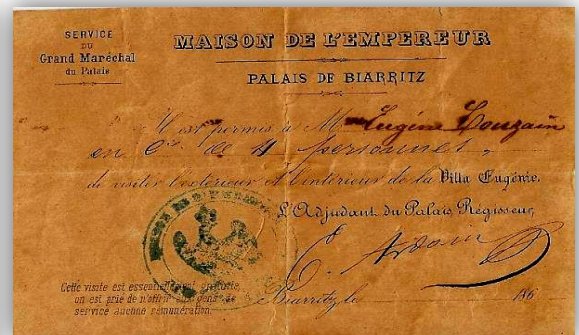 SERVICE
DU
Grand Maréchal
du Palais
MAISON DE L'EMPEREUR
PALAIS DE BIARRITZ
Il est permis à M Eugène
en C.ie de 4 personnes,
de visiter l'extérieur et l'intérieur de la Villa Eugénie.
L'Adjudant du Palais Régisseur,
Ardoin
Cette visite est essentiellement gratuite,
on est prié de n'offrir aux gens de
service aucune rémunération.
Biarritz, le 186